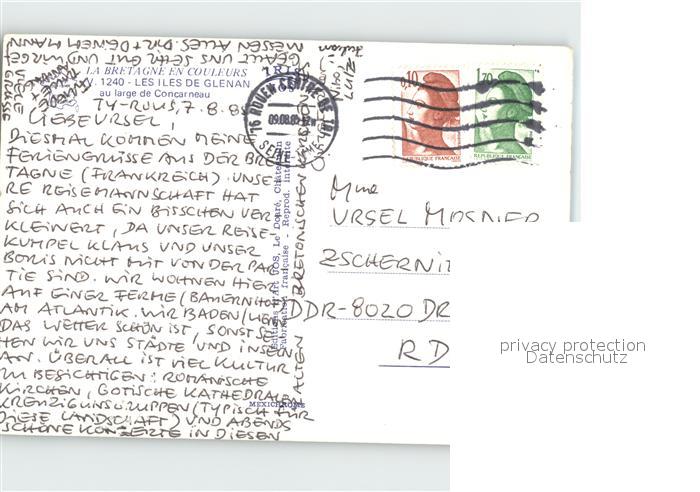 LA BRETAGNE EN COULEURS
1240 - LES ILES DE GLENAN
au large de Concarneau
IRIS
TY-ROUS, 7.8.85
LIEBE URSEL,
DIESMAL KOMMEN MEINE
FERIENGRÜSSE AUS DER BRE
TAGNE (FRANKREICH). UNSE
RE REISEMANNSCHAFT HAT
SICH AUCH EIN BISSCHEN VER
KLEINERT, DA UNSER REISE
KUMPEL KLAUS UND UNSER
BORIS NICHT MIT VON DER PAR
TIE SIND. WIR WOHNEN HIER
AUF EINER FERME (BAUERNHOF)
AM ATLANTIK. WIR BADEN (WENN
DAS WETTER SCHÖN IST, SONST SE
HEN WIR UNS STÄDTE UND INSELN
AN. ÜBERALL IST VIEL KULTUR
ZU BESICHTIGEN: ROMANISCHE
KIRCHEN, GOTISCHE KATHEDRALEN
KREUZIGUNGSGRUPPEN (TYPISCH FÜR
DIESE LANDSCHAFT) UND ABENDS
SCHÖNE KONZERTE IN DIESEN
ALTEN BRETONISCHEN KIRCHEN
GEFÄLLT UNS SEHR GUT UND
MESSEN ALLES. DIR + DEINEM MANN
VIELE
GRÜSSE
MEXICHROME
Editions d'Art JOS, Le Doaré, Châteaulin
Fabrication française - Reprod. interdite
76 ROUEN
CENTRE DE TRI
09.08.85
SEINE-
0,10
REPUBLIQUE FRANÇAISE
1,70
REPUBLIQUE FRANÇAISE
Mme
URSEL
DDR-8020 DR
privacy protection
Datenschutz